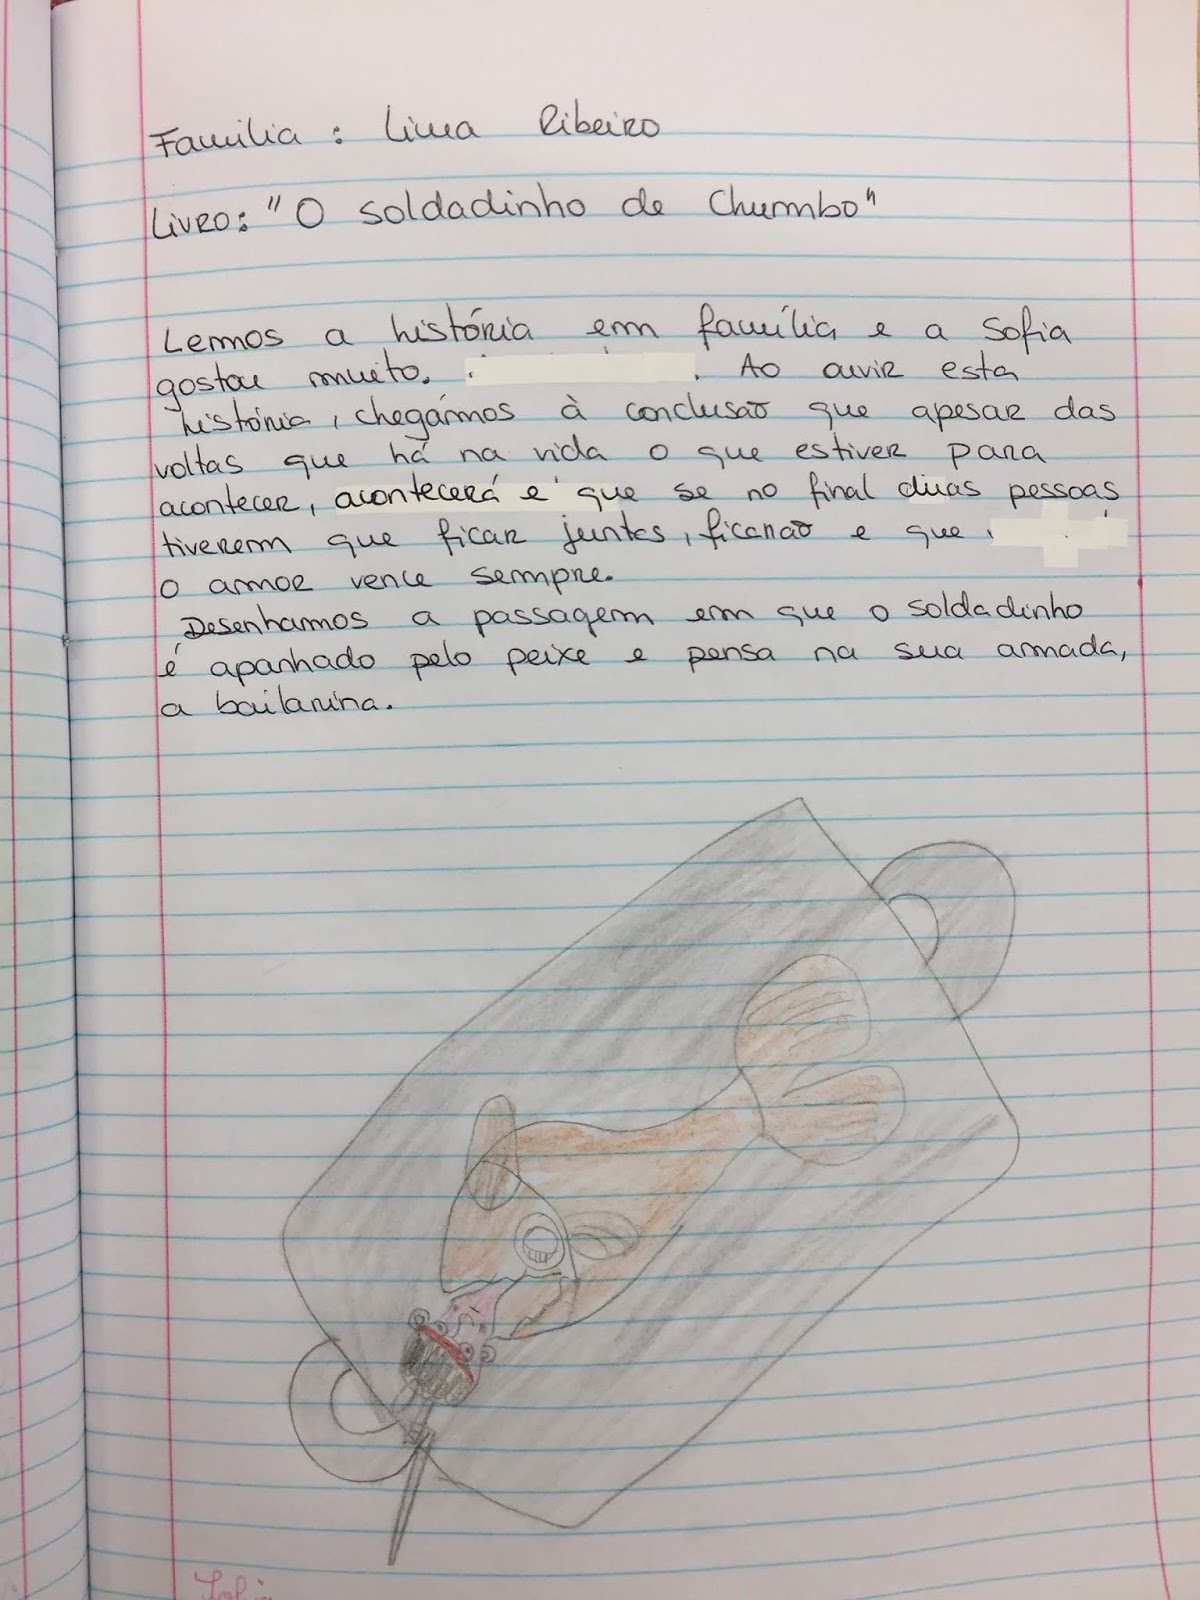 Família: Lima Ribeiro
Livro: "O soldadinho de Chumbo"
Lemos a história em família e a Sofia
gostou muito. . Ao ouvir esta
história, chegámos à conclusão que apesar das
voltas que há na vida o que estiver para
acontecer, acontecerá e que se no final duas pessoas
tiverem que ficar juntas, ficarão e que
o amor vence sempre.
Desenhamos a passagem em que o soldadinho
é apanhado pelo peixe e pensa na sua amada,
a bailarina.
Sofia